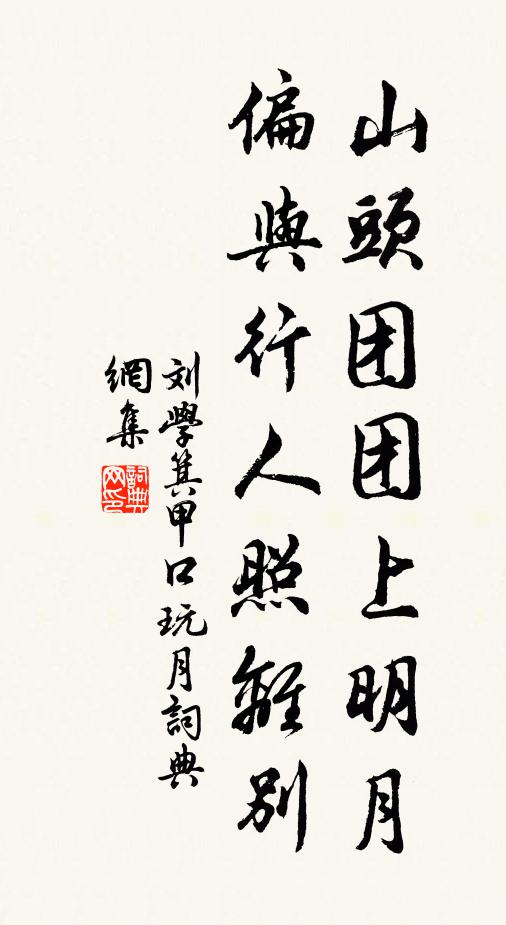 山頭团团上明月
偏與行人照離別
刘學箕甲口玩月詞典
網集
詞典
网印